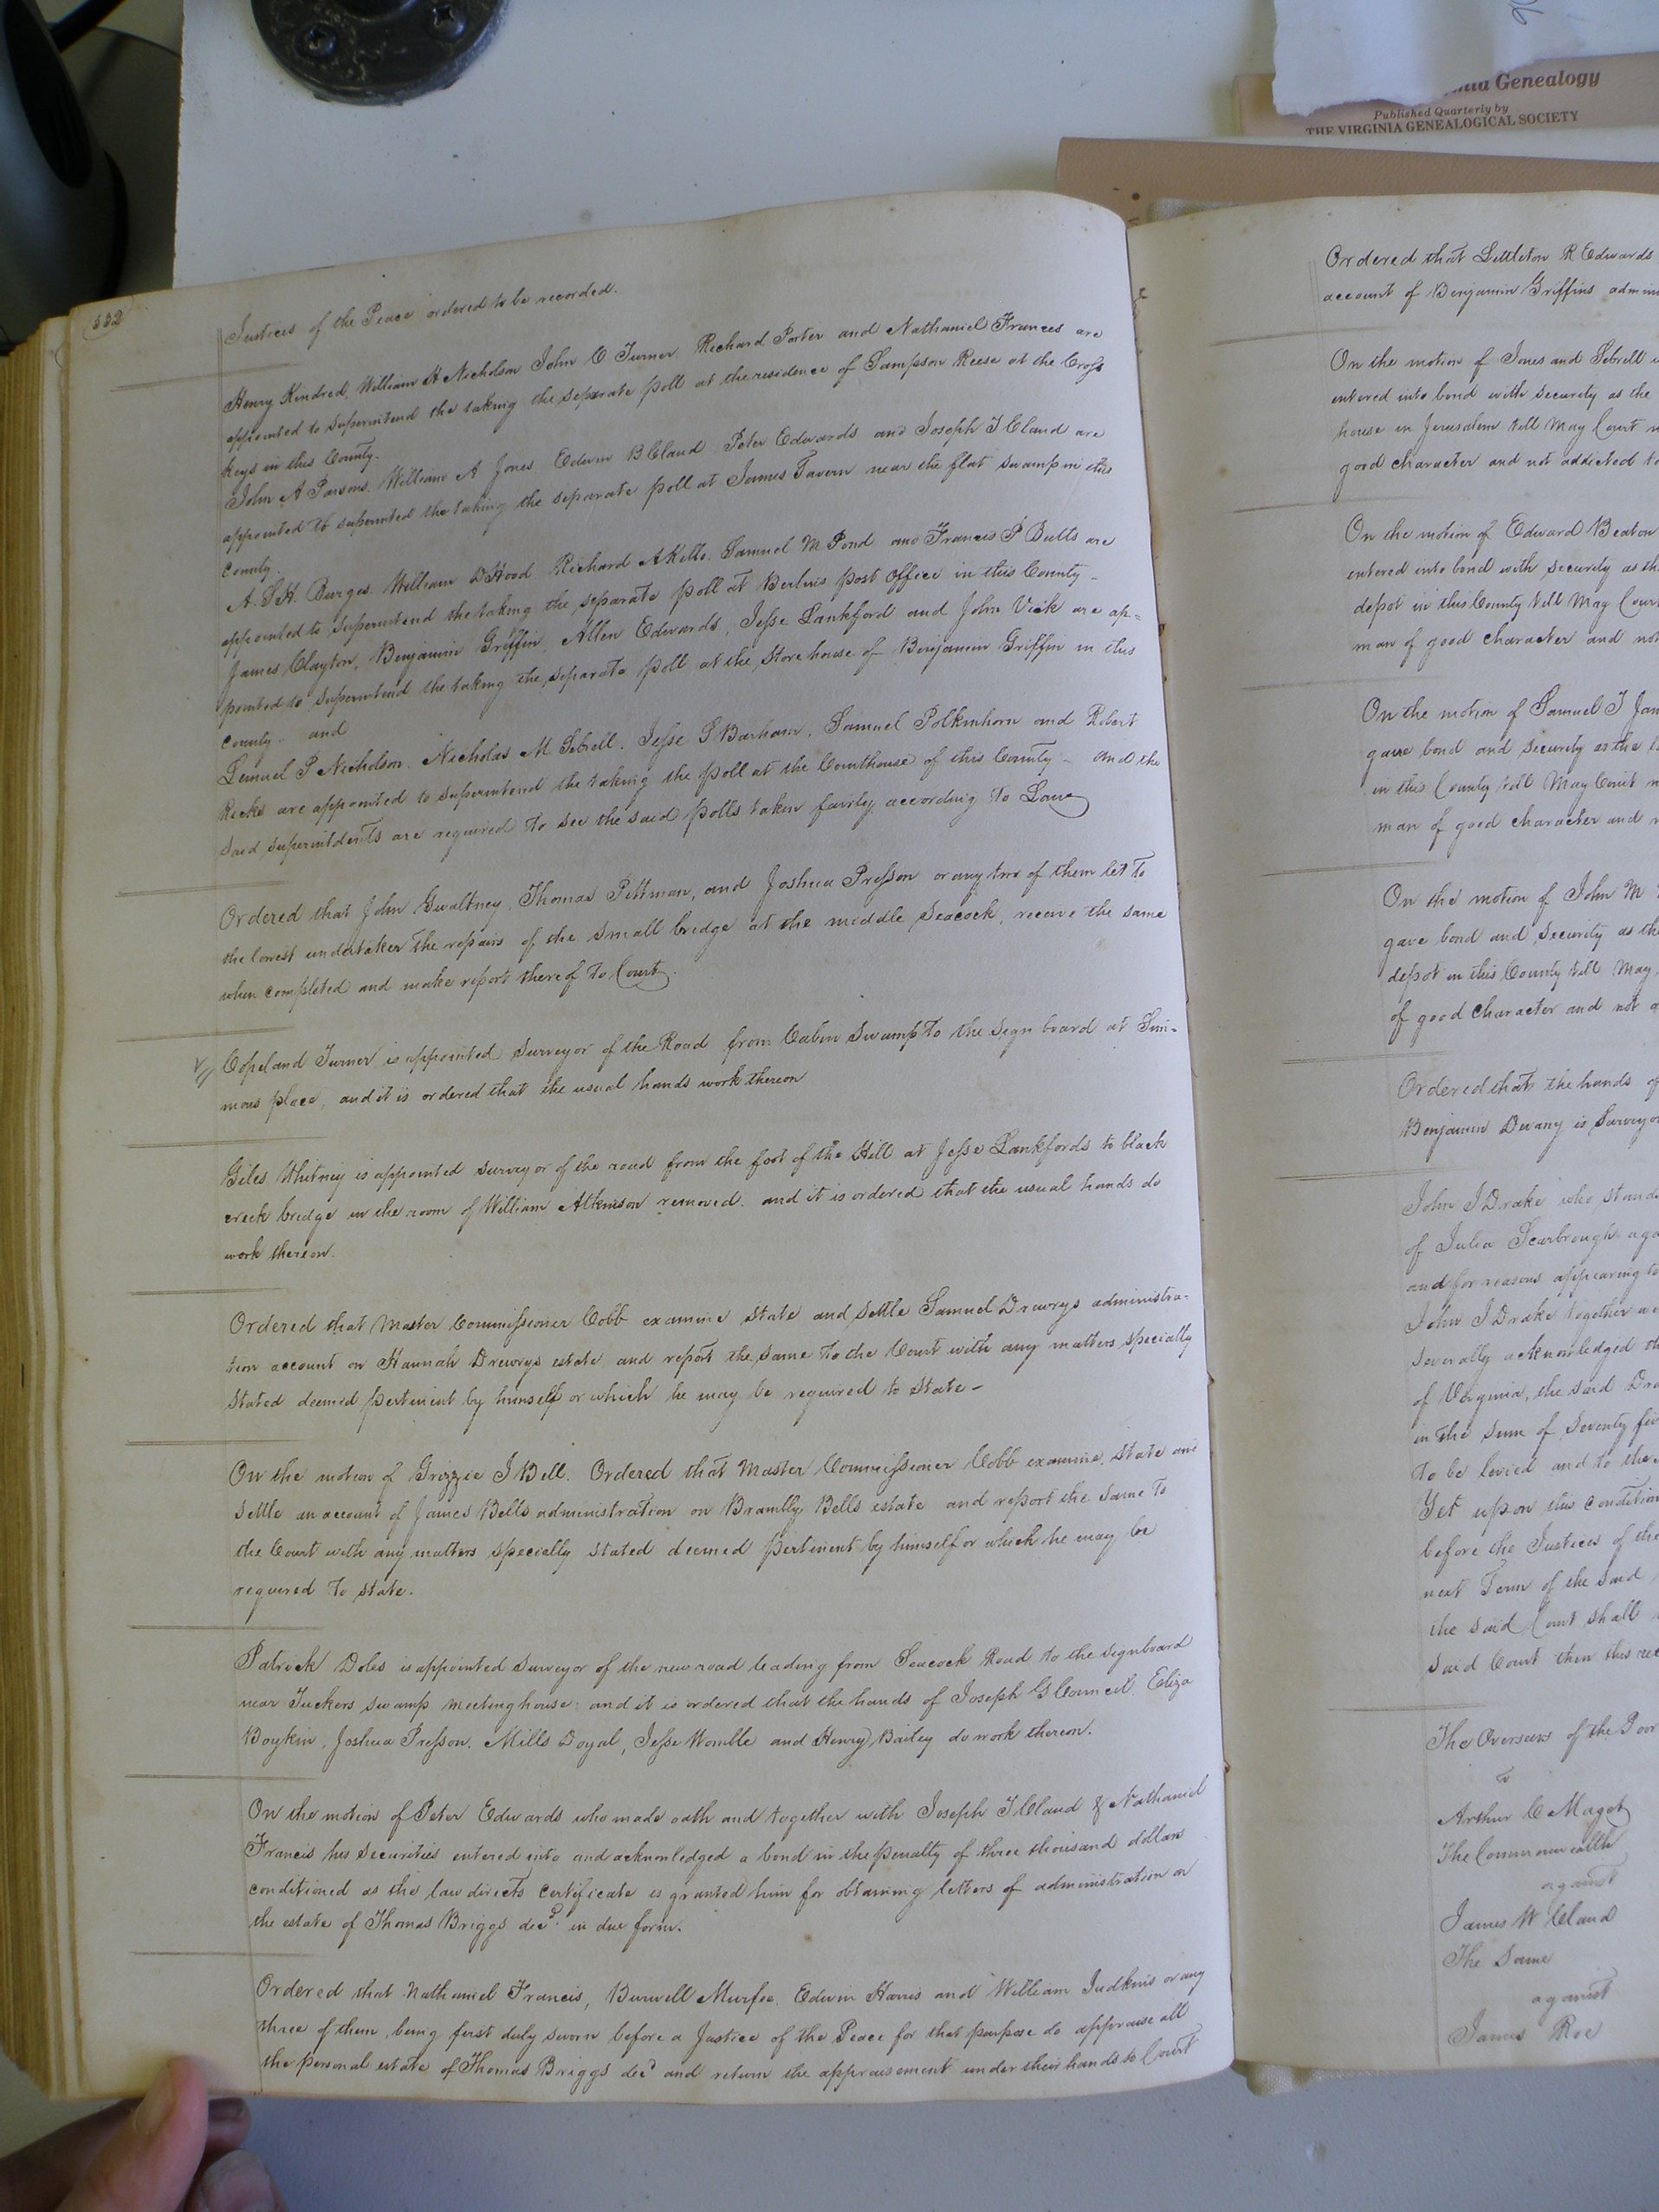 nia Genealogy
Published Quarterly by
THE VIRGINIA GENEALOGICAL SOCIETY
332
Justices of the Peace ordered to be recorded.
Henry Kindred, William H Nicholson John C Turner Richard Porter and Nathaniel Frances are
appointed to superintend the taking the separate poll at the residence of Sampson Reese at the Cross
Keys in this County.
John A Parsons. William A Jones Edwin B Claud Peter Edwards and Joseph T Claud are
appointed to superinted the taking the separate poll at James Tavern near the flat swamp in this
County.
A. S. H. Burges William D Hood Richard A Kello. Samuel M Pond and Francis P Butts are
appointed to superintend the taking the separate poll at Berlins post office in this County -
James Clayton, Benjamin Griffin, Allen Edwards, Jesse Lankford and John Vick are ap=
pointed to superintend the taking the separate poll at the Storehouse of Benjamin Griffin in this
County - and
Lemuel P Nicholson. Nicholas M Sebrell. Jesse S Barham, Samuel Polkinhorn and Robert
Ricks are appointed to superintend the taking the poll at the Courthouse of this County - and the
said superintdents are required to see the said polls taken fairly according to Law
Ordered that John Gwaltney, Thomas Pittman, and Joshua Presson or any two of them let to
the lowest undertaker the repairs of the small bridge at the middle Seacock, receive the same
when completed and make report thereof to Court.
Copeland Turner is appointed surveyor of the Road from Cabin Swamp to the sign board at Sim-
mons place, and it is ordered that the usual hands work thereon
Giles Whitney is appointed surveyor of the road from the foot of the Hill at Jesse Lankfords to black
creek bridge in the room of William Atkinson removed. and it is ordered that the usual hands do
work thereon.
Ordered that Master Commissioner Cobb examine state and settle Samuel Drewrys administra-
tion account on Hannah Drewrys estate and report the same to the Court with any matters specially
stated deemed pertinent by himself or which he may be required to state -
On the motion of Grizzie J Bell. Ordered that Master Commissioner Cobb examine, state and
settle an account of James Bells administration on Brambly Bells estate and report the same to
the Court with any matters specially stated deemed pertinent by himself or which he may be
required to state.
Patrick Doles is appointed surveyor of the new road leading from Seacock Road to the signboard
near Tuckers swamp meetinghouse: and it is ordered that the hands of Joseph G Council. Eliza
Boykin, Joshua Presson. Mills Doyal, Jesse Womble and Henry Bailey do work thereon.
On the motion of Peter Edwards who made oath and together with Joseph T Claud & Nathaniel
Francis his securities entered into and acknowledged a bond in the penalty of three thousand dollars
conditioned as the law directs certificate is granted him for obtaining letters of administration on
the estate of Thomas Briggs decd. in due form.
Ordered that Nathaniel Francis, Burwell Murfee, Edwin Harris and William Judkins or any
three of them, being first duly sworn before a Justice of the Peace for that purpose do appraise all
the personal estate of Thomas Briggs decd and return the appraisement under their hands to Court
Ordered that Littleton R Edwards
account of Benjamin Griffins admin
On the motion of Jones and Sebrell
entered into bond with security as the
house in Jerusalem till May Court
good character and not addicted to
On the motion of Edward Beaton
entered into bond with security as th
depot in this County till May Cour
man of good character and not
On the motion of Samuel J Jam
gave bond and security as the
in this County till May Court
man of good character and
On the motion of John M
gave bond and security as th
depot in this County till May
of good character and not
Ordered that the hands of
Benjamin Dwany is Surveyo
John J Drake who stand
of Julia Scarbrough aga
and for reasons appearing to
John J Drake together wi
severally acknowledged th
of Virginia, the said Dra
in the sum of Seventy fiv
to be levied and to the
Yet upon this condition
before the Justices of the
next Term of the said
the said Court shall
said Court then this rec
The Overseers of the Poor
vs
Arthur C Maget
The Commonwealth
against
James W Claud
The Same
against
James Roe